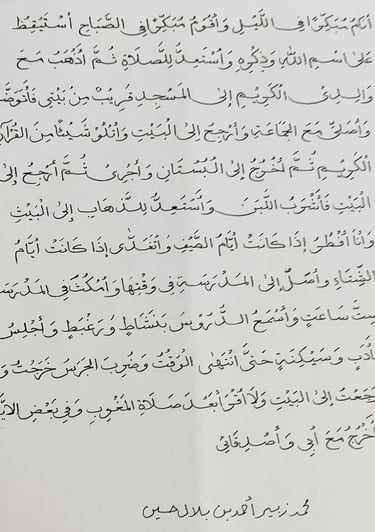 أنام مُبَكِّرًا فِي اللَّيْلِ وَأَقُومُ مُبَكِّرًا فِي الصَّبَاحِ أَسْتَيْقِظُ
عَلَى اسْمِ اللهِ وَذِكْرِهِ وَأَسْتَعِدُّ لِلصَّلَاةِ ثُمَّ أَذْهَبُ مَعَ
وَالِدِيْ الْكَرِيْمِ إِلَى الْمَسْجِدِ قَرِيْبٌ مِنْ بَيْتِي فَأَتَوَضَّأُ
وَأُصَلِّيْ مَعَ الْجَمَاعَةِ وَأَرْجِعُ إِلَى الْبَيْتِ وَأَتْلُوْ شَيْئًا مِنَ الْقُرْآنِ
الْكَرِيْمِ ثُمَّ أَخْرُجُ إِلَى الْبُسْتَانِ وَأَجْرِيْ ثُمَّ أَرْجِعُ إِلَى
الْبَيْتِ فَأَشْرَبُ اللَّبَنَ وَأَسْتَعِدُّ لِلذَّهَابِ إِلَى الْبَيْتِ
وَأَنَا أُفْطِرُ إِذَا كَانَتْ أَيَّامُ الصَّيْفِ وَأَتَغَدَّى إِذَا كَانَتْ أَيَّامُ
الشِّتَاءِ وَأَصِلُ إِلَى الْمَدْرَسَةِ فِي وَقْتِهَا وَأَمْكُثُ فِي الْمَدْرَسَةِ
سِتَّ سَاعَتٍ وَأَسْمَعُ الدُّرُوْسَ بِنَشَاطٍ وَرَغْبَطٍ وَأَجْلِسُ
بِأَدَبٍ وَسَكِيْنَةٍ حَتَّى انْتَهَى الْوَقْتُ وَضُرِبَ الْجَرَسُ خَرَجْتُ وَ
رَجَعْتُ إِلَى الْبَيْتِ وَلَا أَقْرَأُ بَعْدَ صَلَاةِ الْمَغْرِبِ وَفِيْ بَعْضِ الْأَيَّامِ
أَخْرُجُ مَعَ أَبِيْ وَأَصْدِقَائِي
محمد زبير احمد بن بلال حسين